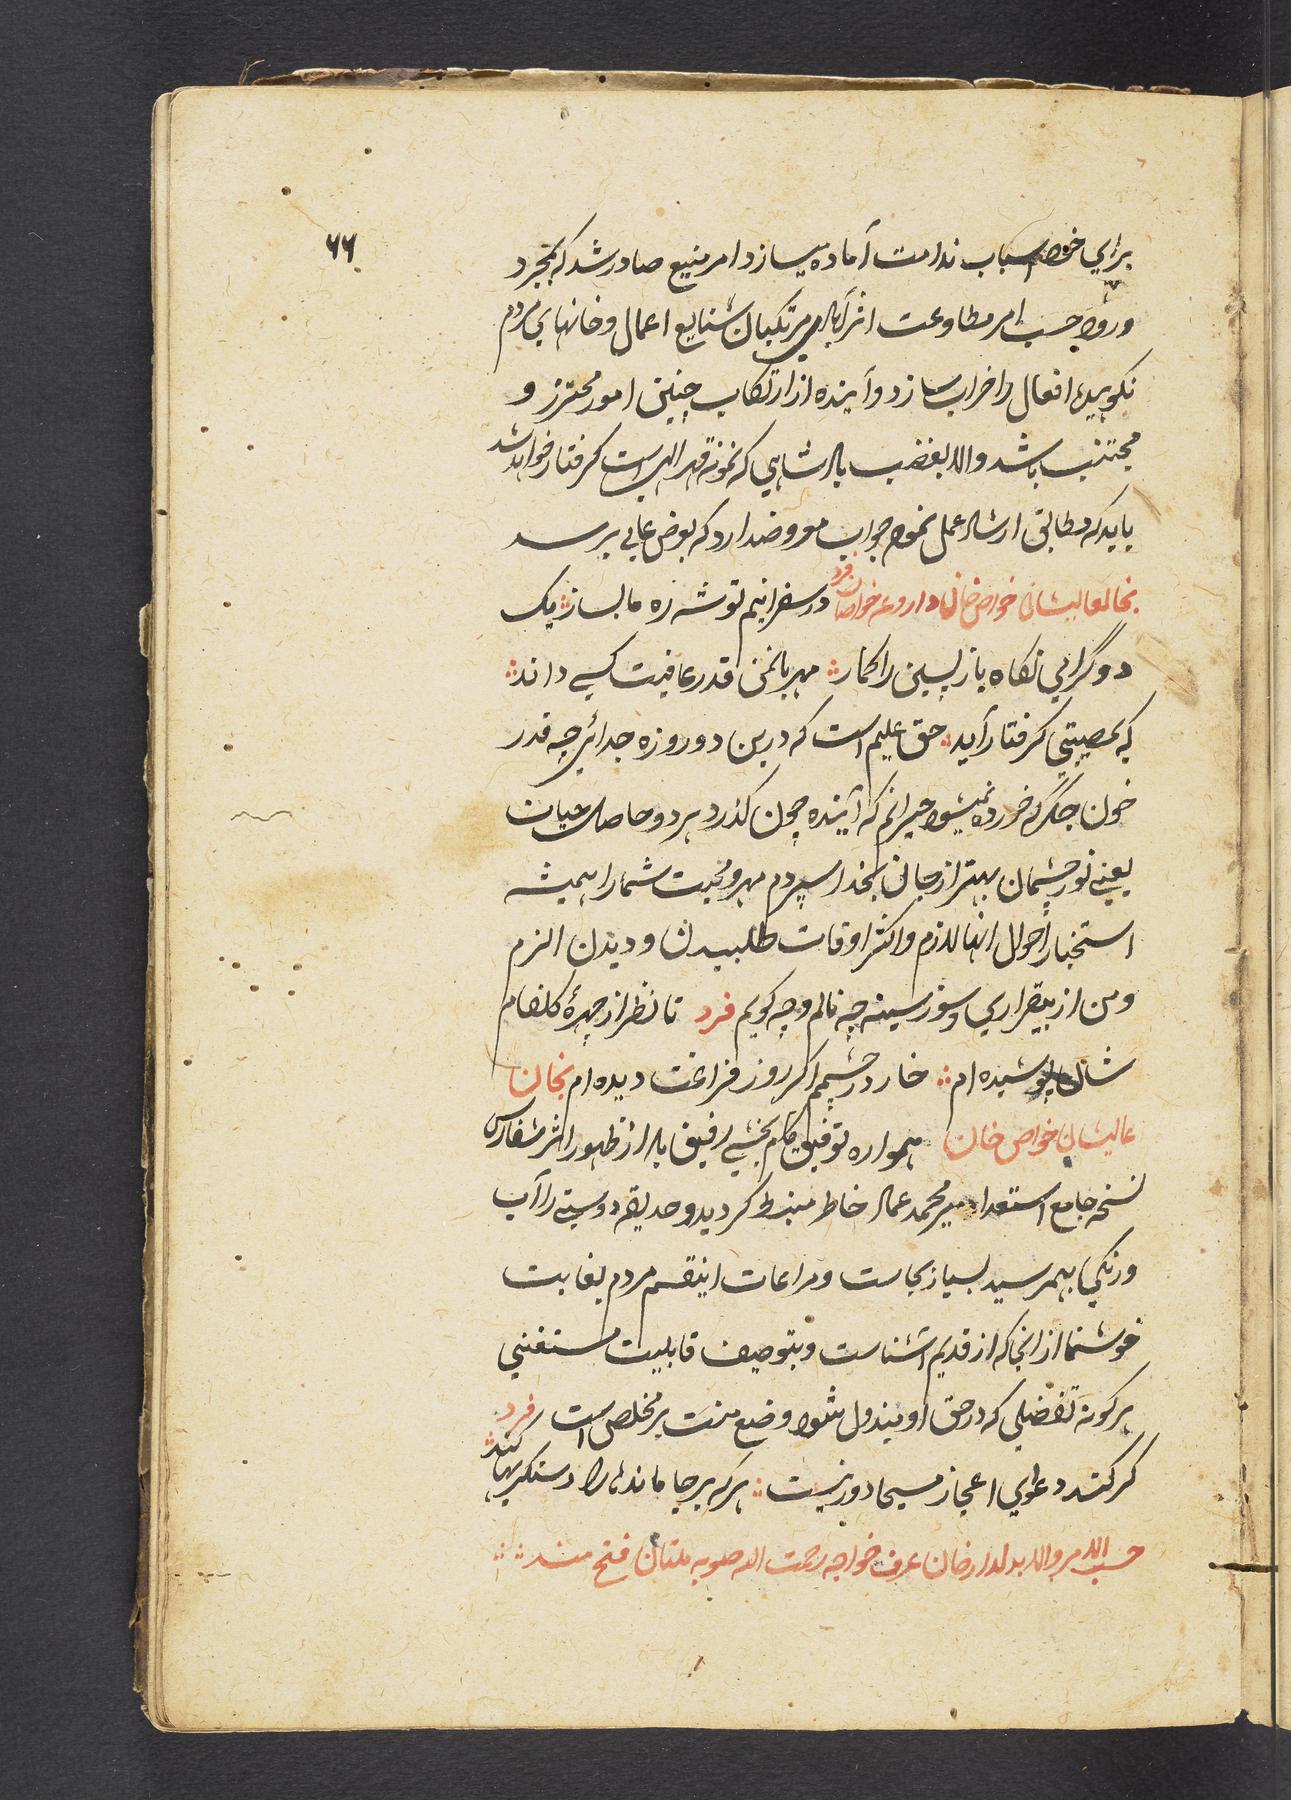 ۶۶
برای خود اسباب ندامت آماده میسازد امر منیع صادر شد که بمجرد
ورود حسب امر مطاوعت اثر آبادی مرتکبان شنایع اعمال و خانهای مردم
نکوهیده افعال را خراب سازد و آینده از ارتکاب چنین امور محترز و
مجتنب باشد والا بغضب بادشاهی که نمونه قهر الهی است گرفتار خواهد شد
باید که مطابق ارشاد عمل نموده جواب معروضدارد که بعرض عالی برسد
بخان عالیشان خواص خان داروغه خواصان فرد در سفرانیم توشه ره ما بساز یک
دو گرامی نگاه باز پسین را کمار مهربانمن قدر عافیت کسی داند
که بمصیبتی گرفتار آید حق علیم است که درین دو روزه جدائی چه قدر
خون جگر که خورده نمیشود حیرانم که آینده چون گذرد هر دو حاصل حیات
یعنی نور چشمان بهتر از جان بخدا سپردم مهر و محبت شما را همیشه
استخبار احوال انها لازم و اکثر اوقات طلبیدن و دیدن الزم
و من از بیقراری و سوز سینه چه نالم و چه گویم فرد تا نظر از چهرهٔ گلفام
شان پوشیده ام خار در چشمم اگر روز فراغت دیده ام بخان
عالیشان خواص خان همواره توفیق کام بخشی رفیق باد از ظهور اثر سفارش
نسخه جامع استعداد میر محمد عماد خاطر منبسط گردید و حدیقه دوستی را آب
و رنگی بهمرسید بسیار بجاست و مراعات اینقسم مردم بغایت
خوشنما از انجا که از قدیم آشناست و بتوصیف قابلیت مستغنی
هر گونه تفضلی که در حق او مبذول شود وضع منت بر مخلص است فرد
گر کند دعوای اعجاز مسیحا دور نیست هر که بر جا مانده را دستگیریها کند
حسب الامر والا بدلدار خان عرف خواجه رحمت الله صوبه ملتان فتح مند